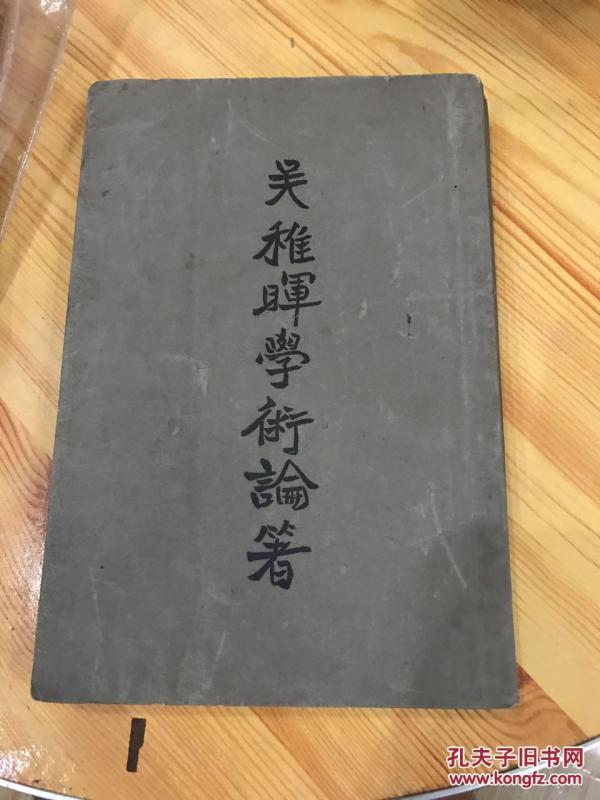 吴稚暉學術論箸
孔夫子旧书网
www.kongfz.com